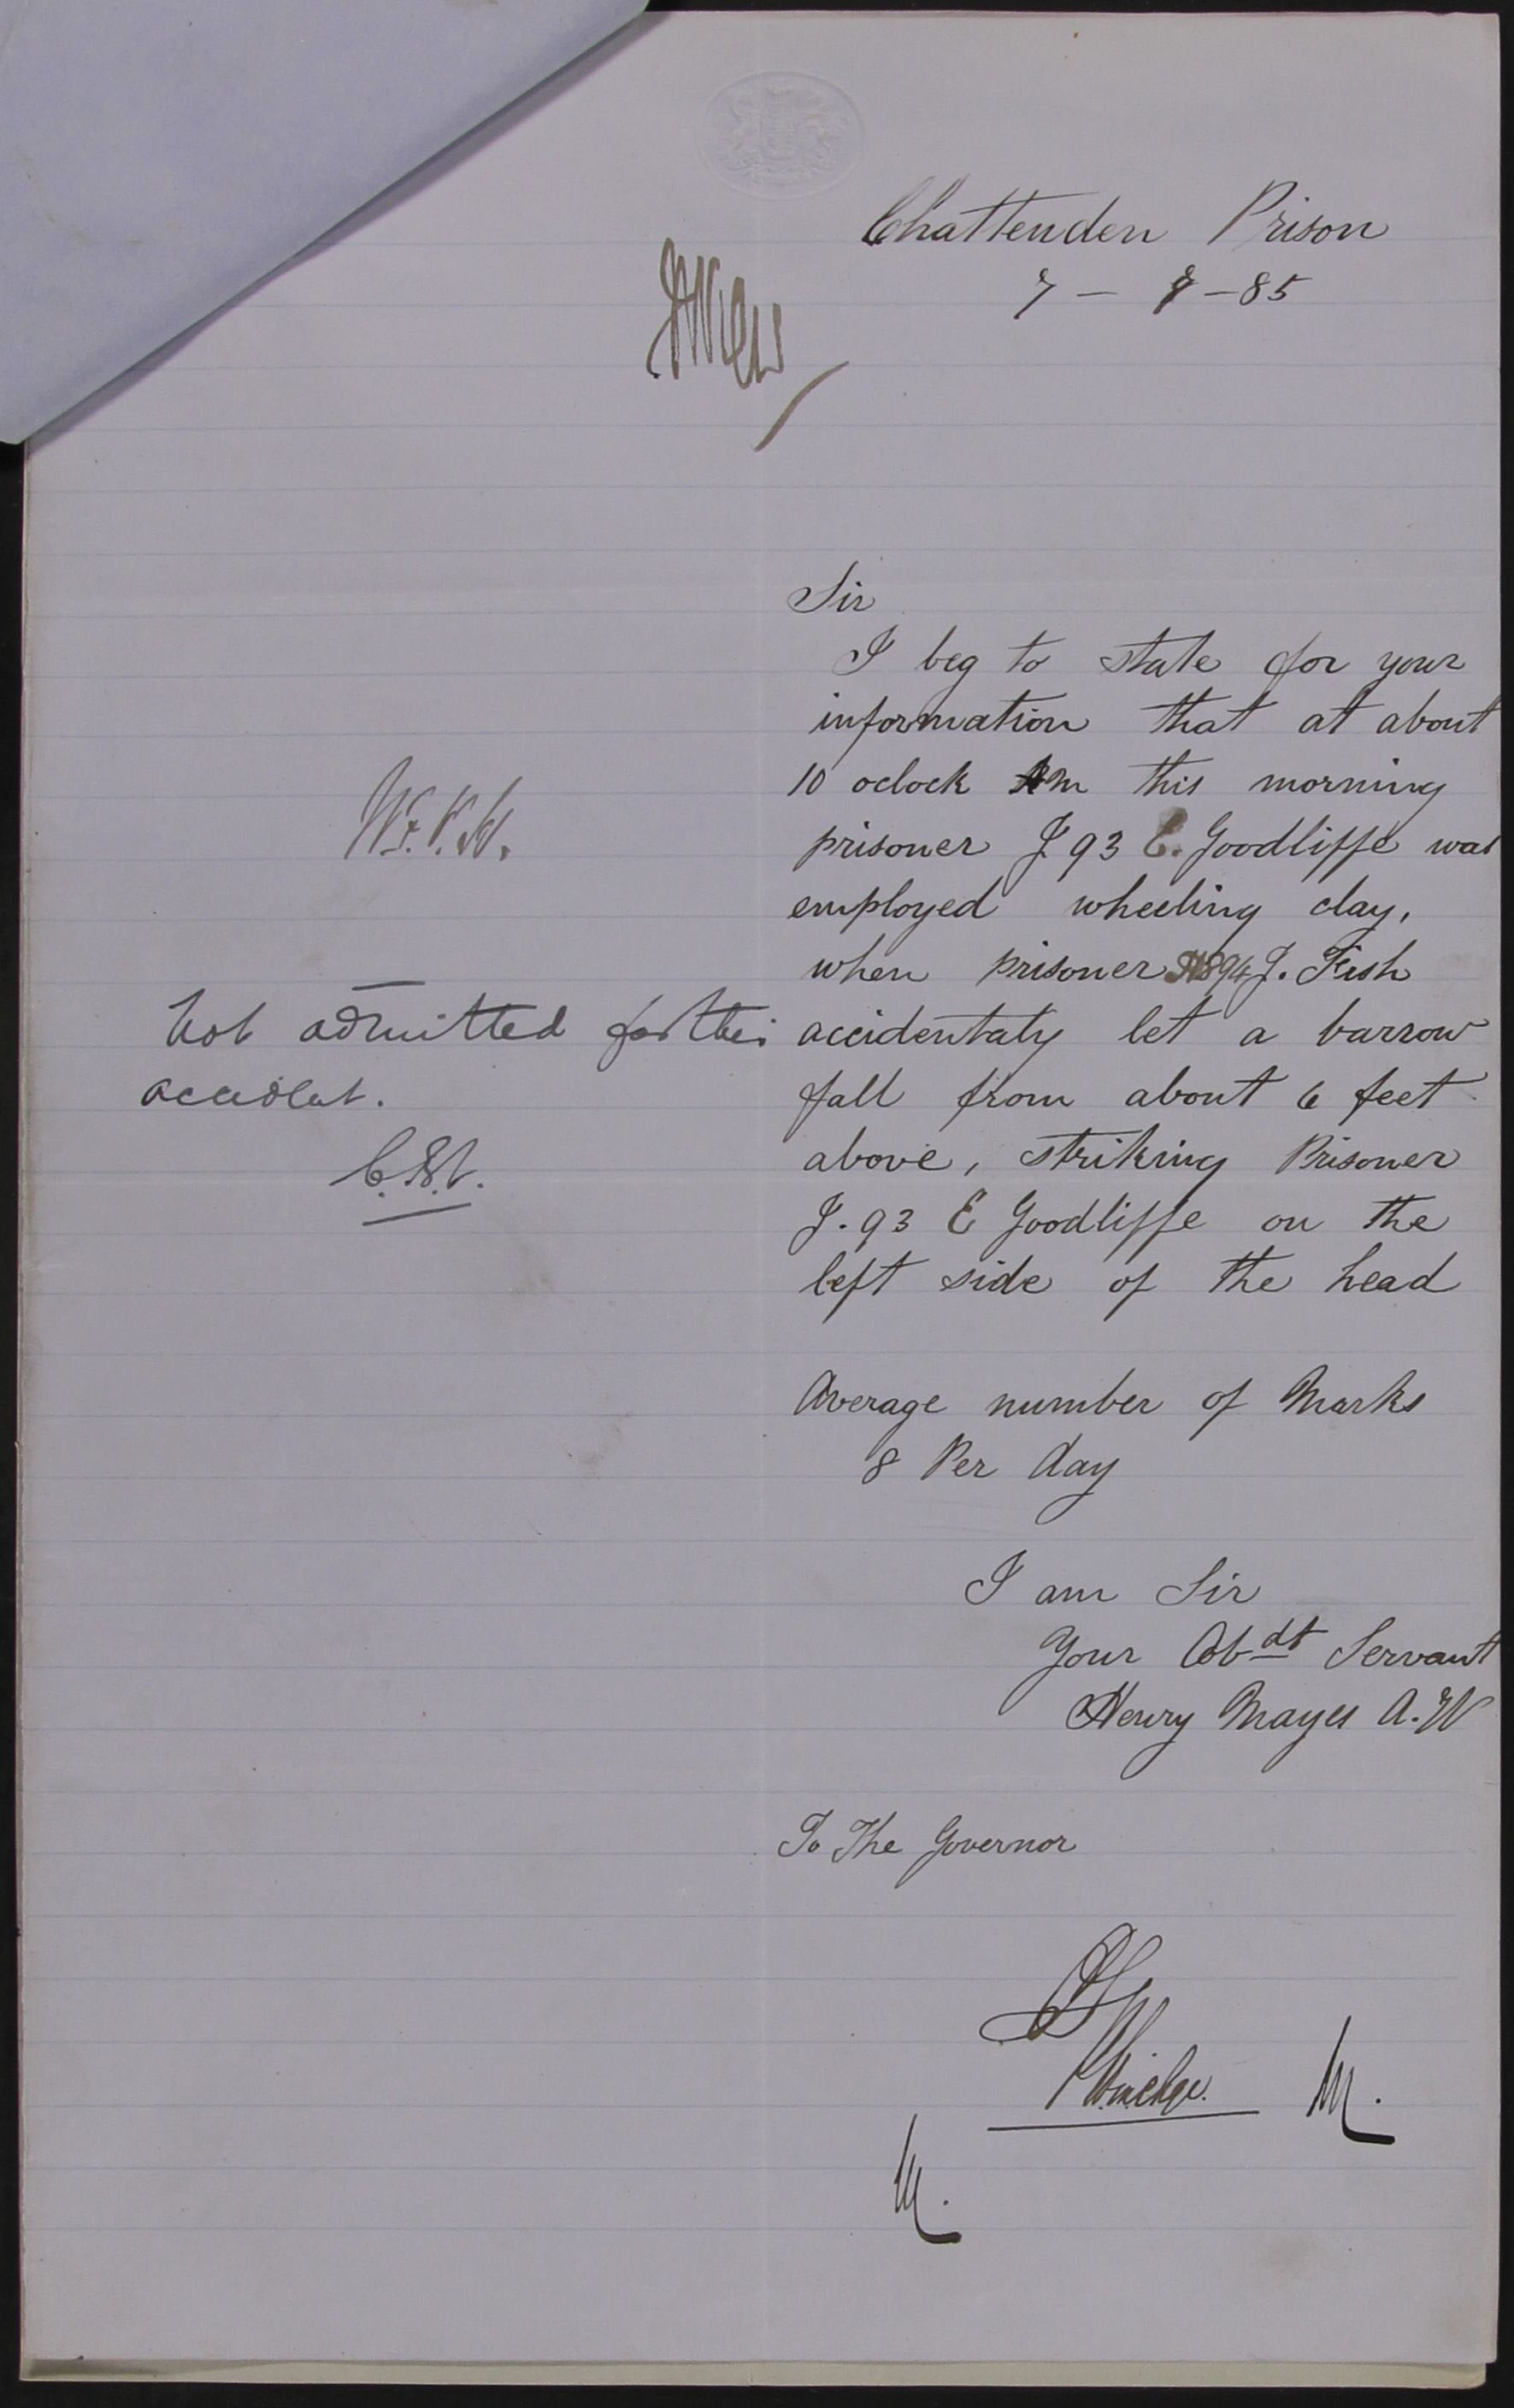 Chattenden Prison
7 - 9 - 85
Sir
I beg to state for your
information that at about
10 oclock Am this morning
prisoner J 93 E. Goodliffe was
employed wheeling clay,
when prisoner H894 J. Fish
accidentaly let a barrow
fall from about 6 feet
above, striking Prisoner
J. 93 E Goodliffe on the
left side of the head
Average number of Marks
8 Per day
I am Sir
Your Obdt Servant
Henry Mayes A. W
To The Governor
M.
M.
W.F.V.H.
Not admitted for this
accident.